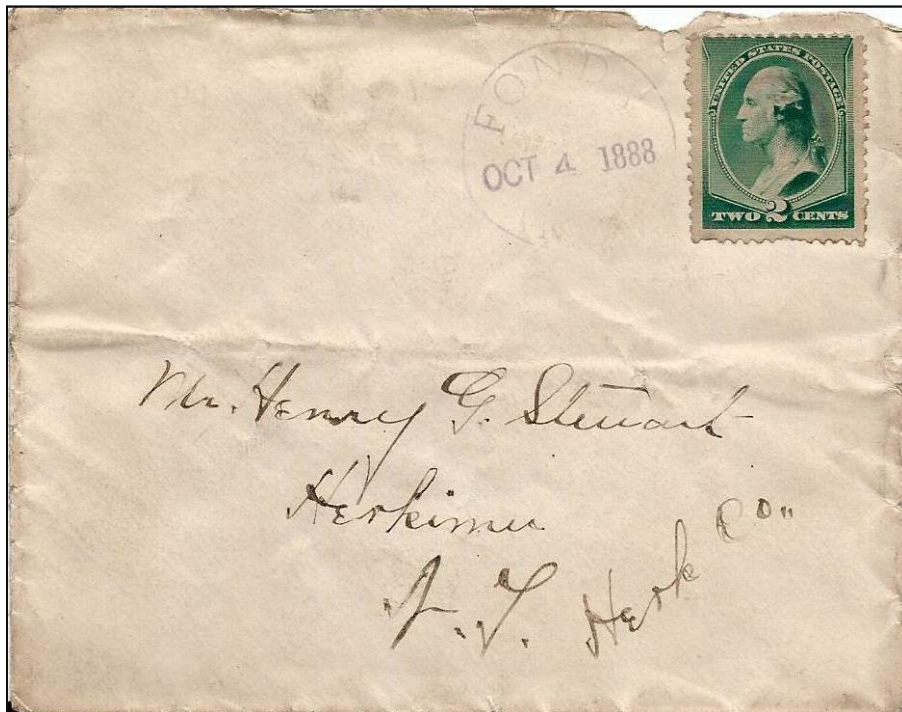 FOND
OCT 4 1888
UNITED STATES POSTAGE
TWO 2 CENTS
Mr. Henry G. Stewart
Herkimer
N.Y. Herk Co"